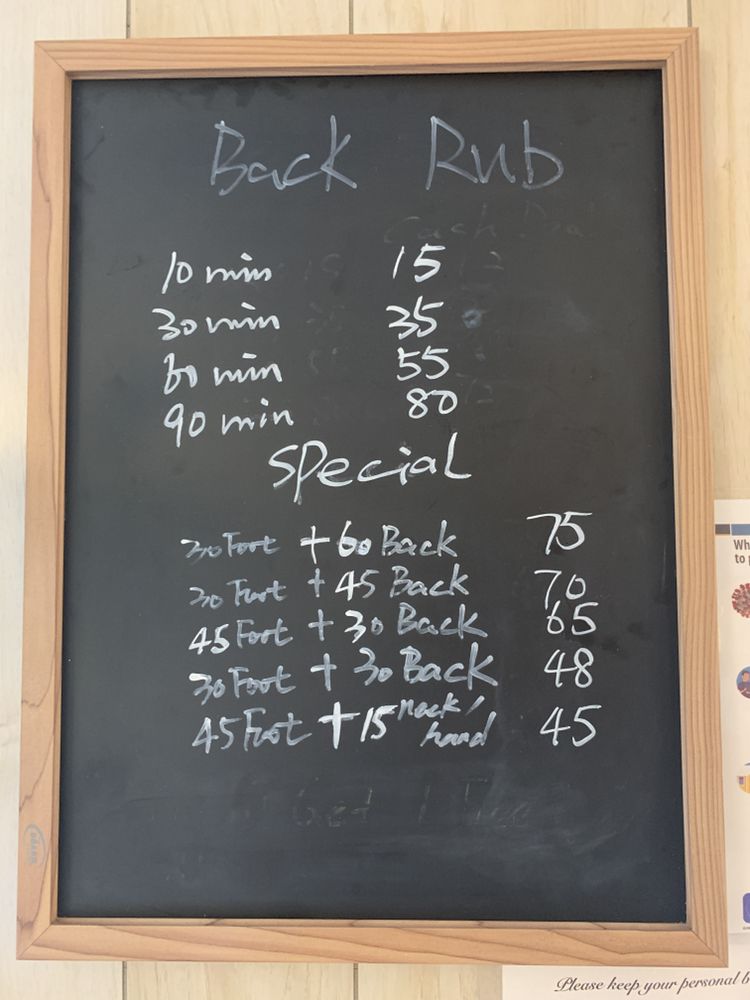 Back Rub
10 min 15
30 min 35
60 min 55
90 min 80
Special
30 Foot + 60 Back 75
30 Foot + 45 Back 70
45 Foot + 30 Back 65
30 Foot + 30 Back 48
45 Foot + 15 neck/hand 45
Get 1 Free
Wh
to
Please keep your personal b